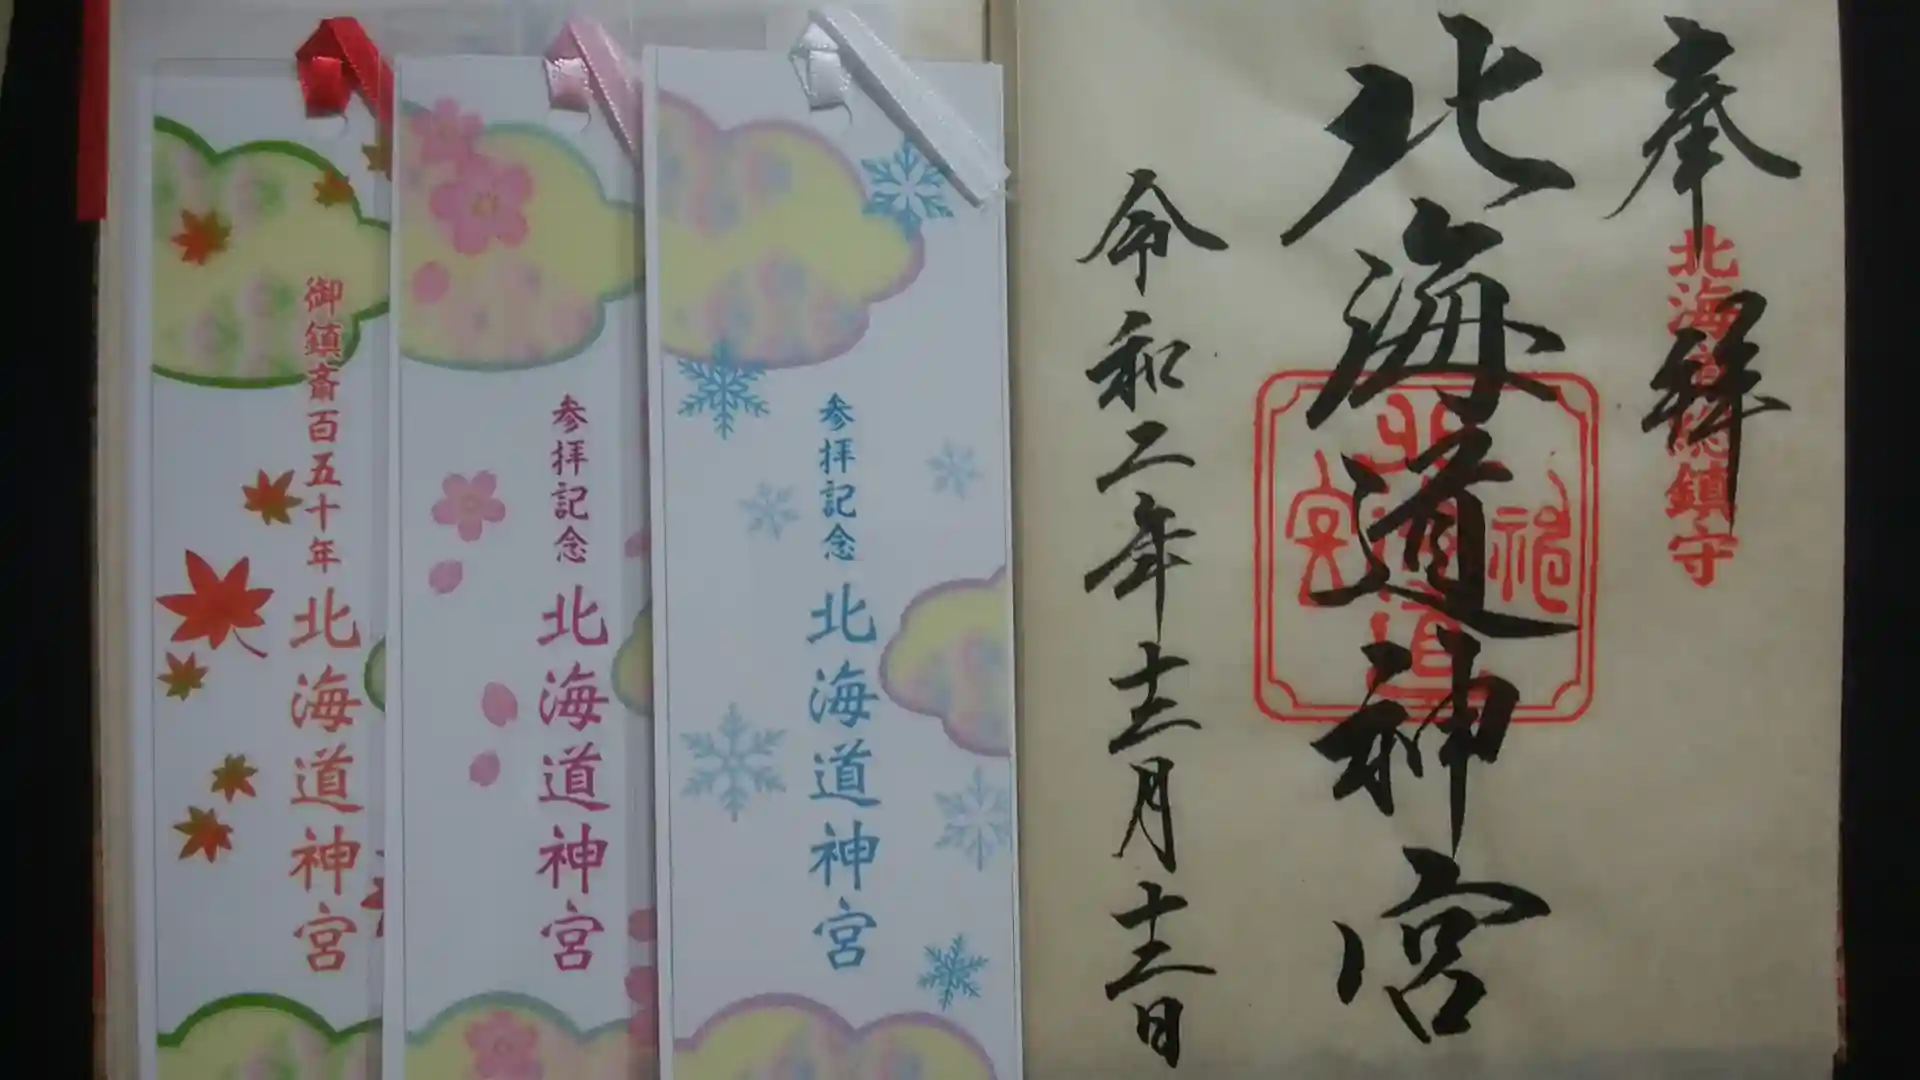 奉拝
北海道総鎮守
北海道神宮
令和二年十二月十二日
参拝記念 北海道神宮
参拝記念 北海道神宮
御鎮斎百五十年 北海道神宮